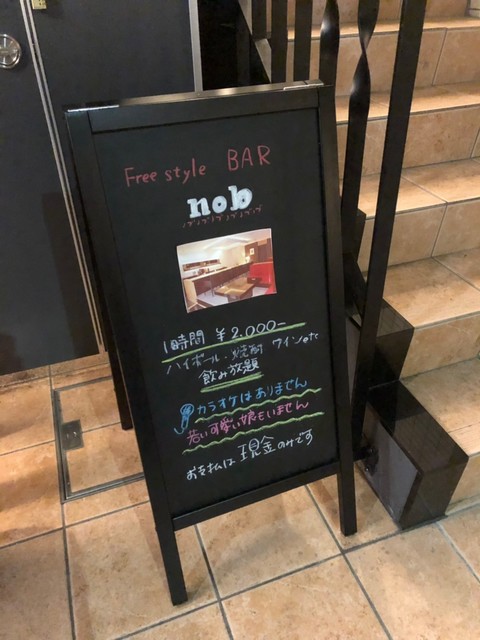 Free style BAR
nob
1時間 ¥2,000-
ハイボール・焼酎 ワインetc
飲み放題
カラオケはありません
若い可愛い娘もいません
お支払は現金のみです